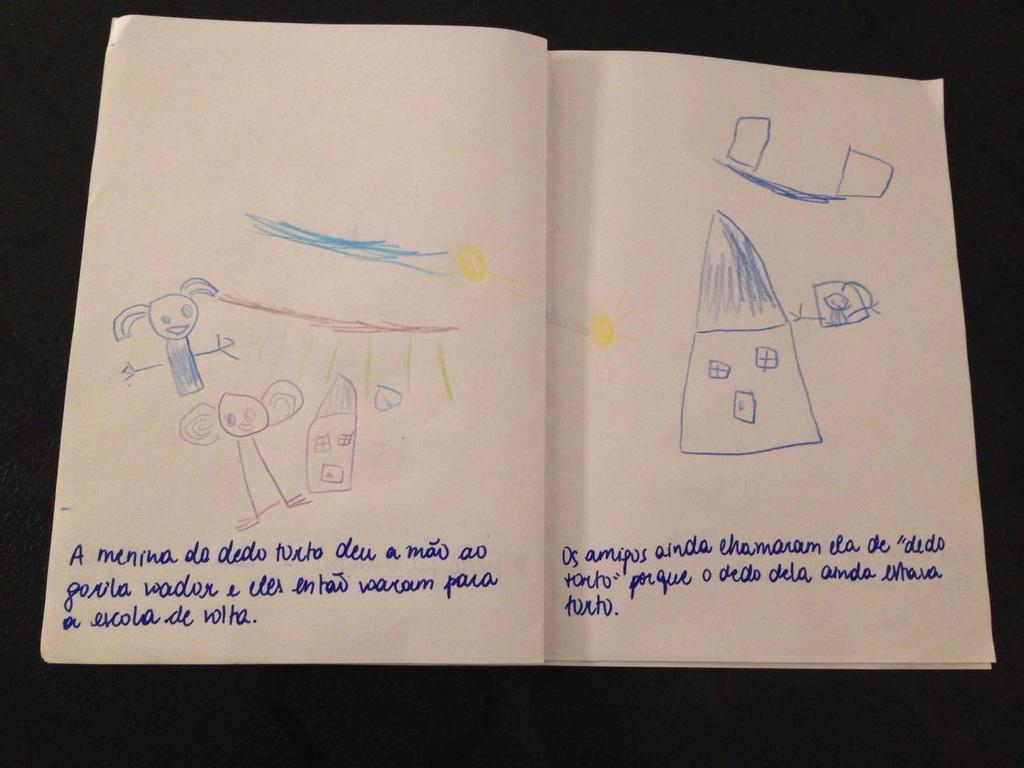 A menina do dedo torto deu a mão ao
gorila voador e eles então voaram para
a escola de volta.
Os amigos ainda chamaram ela de "dedo
torto" porque o dedo dela ainda estava
torto.